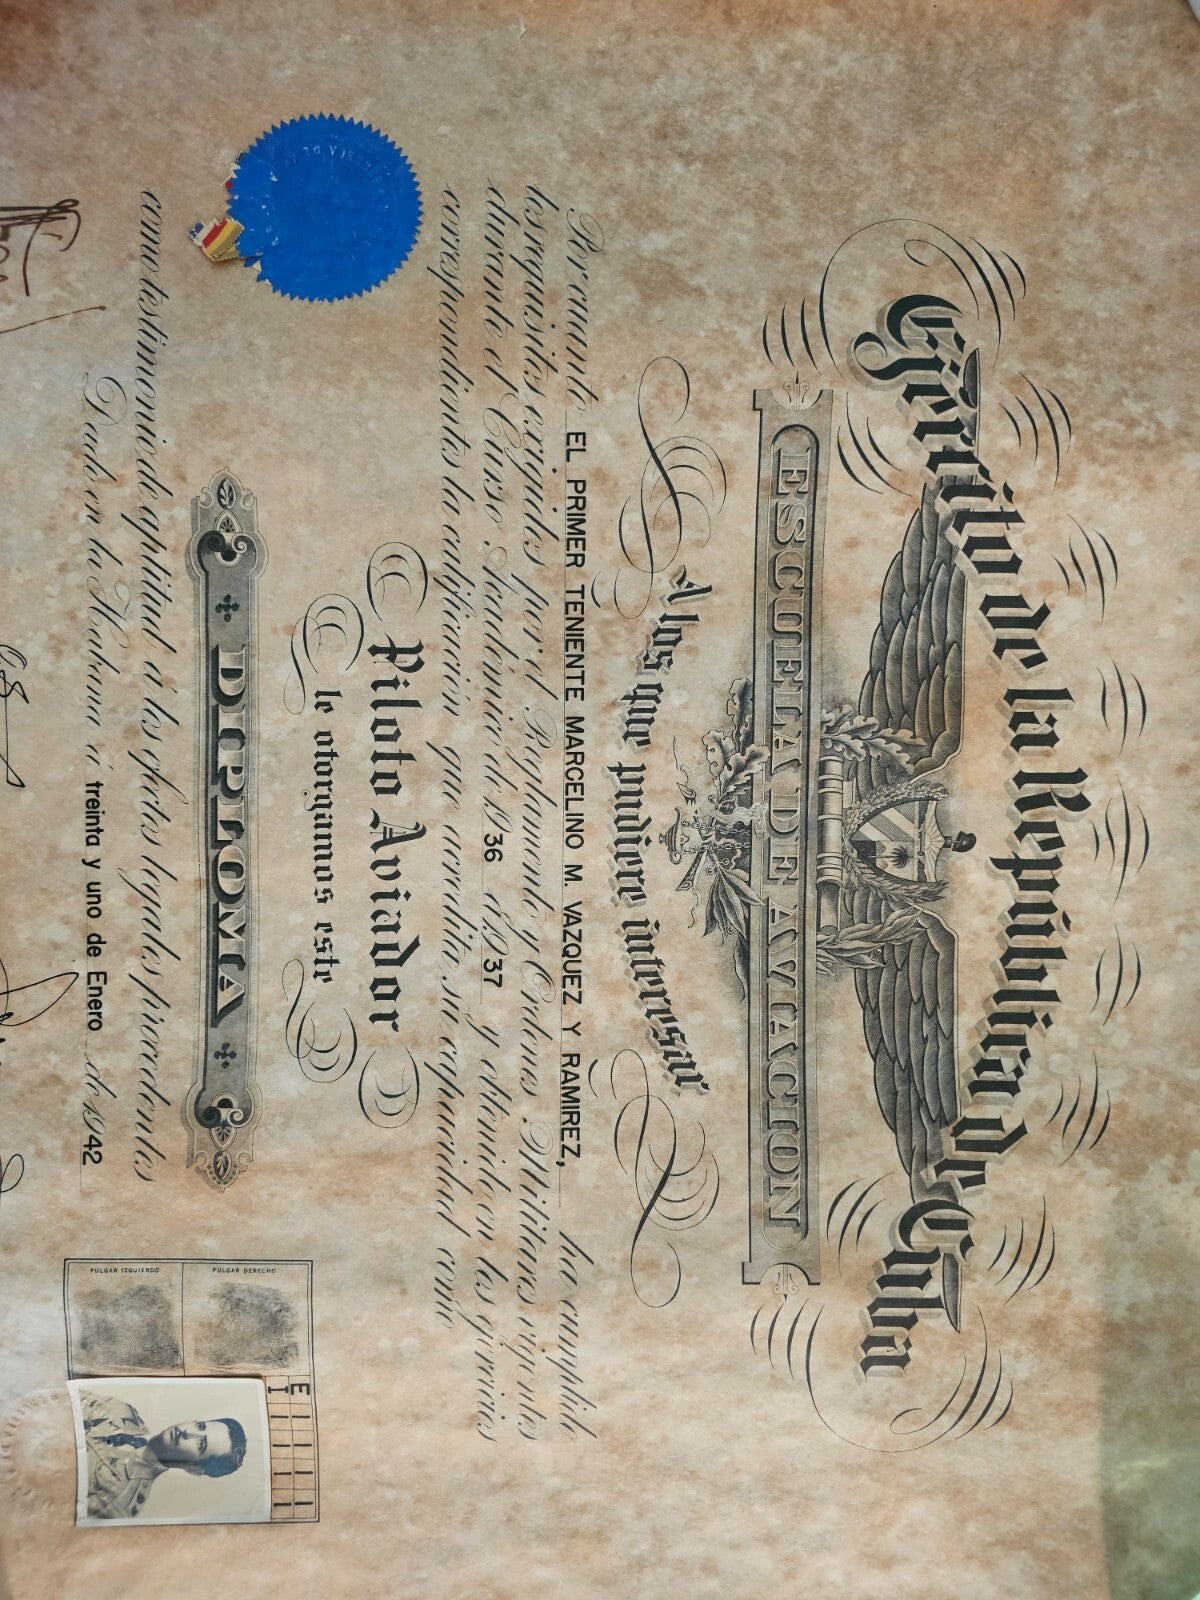 Ejército de la República de Cuba
ESCUELA DE AVIACION
A los que pudiere interesar
Por cuanto EL PRIMER TENIENTE MARCELINO M. VAZQUEZ Y RAMIREZ, ha cumplido
los requisitos exigidos por el Reglamento y Ordenes Militares vigentes
durante el Curso Académico de 1936 á 1937 y obtenido en los ejercicios
correspondientes la calificación que acredita su capacidad como
Piloto Aviador
le otorgamos este
DIPLOMA
como testimonio de aptitud á los efectos legales procedentes
Dado en la Habana á treinta y uno de Enero de 1942
PULGAR IZQUIERDO
PULGAR DERECHO
E
I